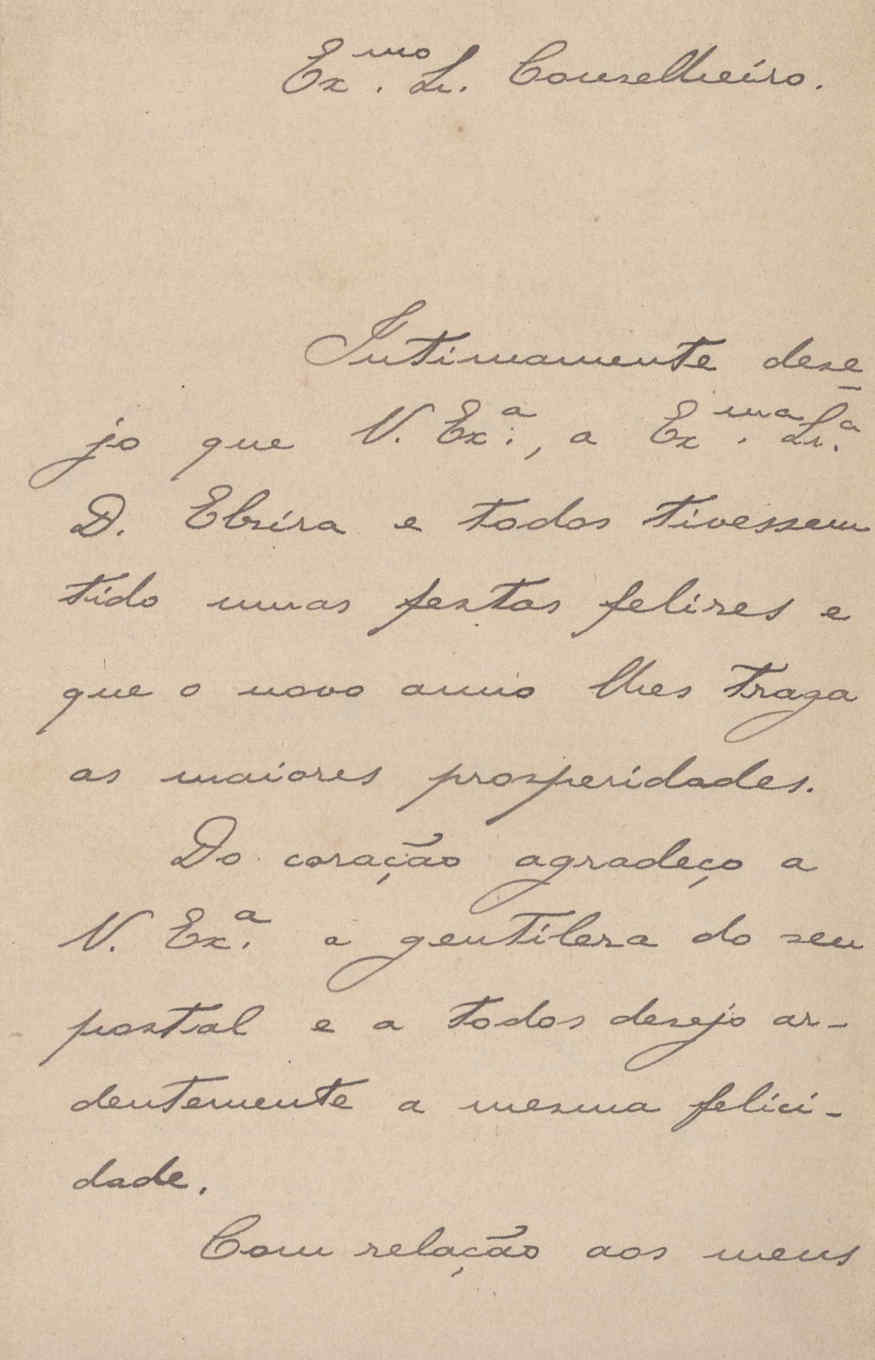 Ex.mo Sr. Conselheiro.
Intimamente dese-
jo que V. Ex.a, a Ex.ma Sr.a
D. Elzira e todos tivessem
tido umas festas felizes e
que o novo anno lhes traga
as maiores prosperidades.
Do coração agradeço a
V. Ex.a a gentileza do seu
postal e a todos desejo ar-
dentemente a mesma felici-
dade.
Com relação aos meus